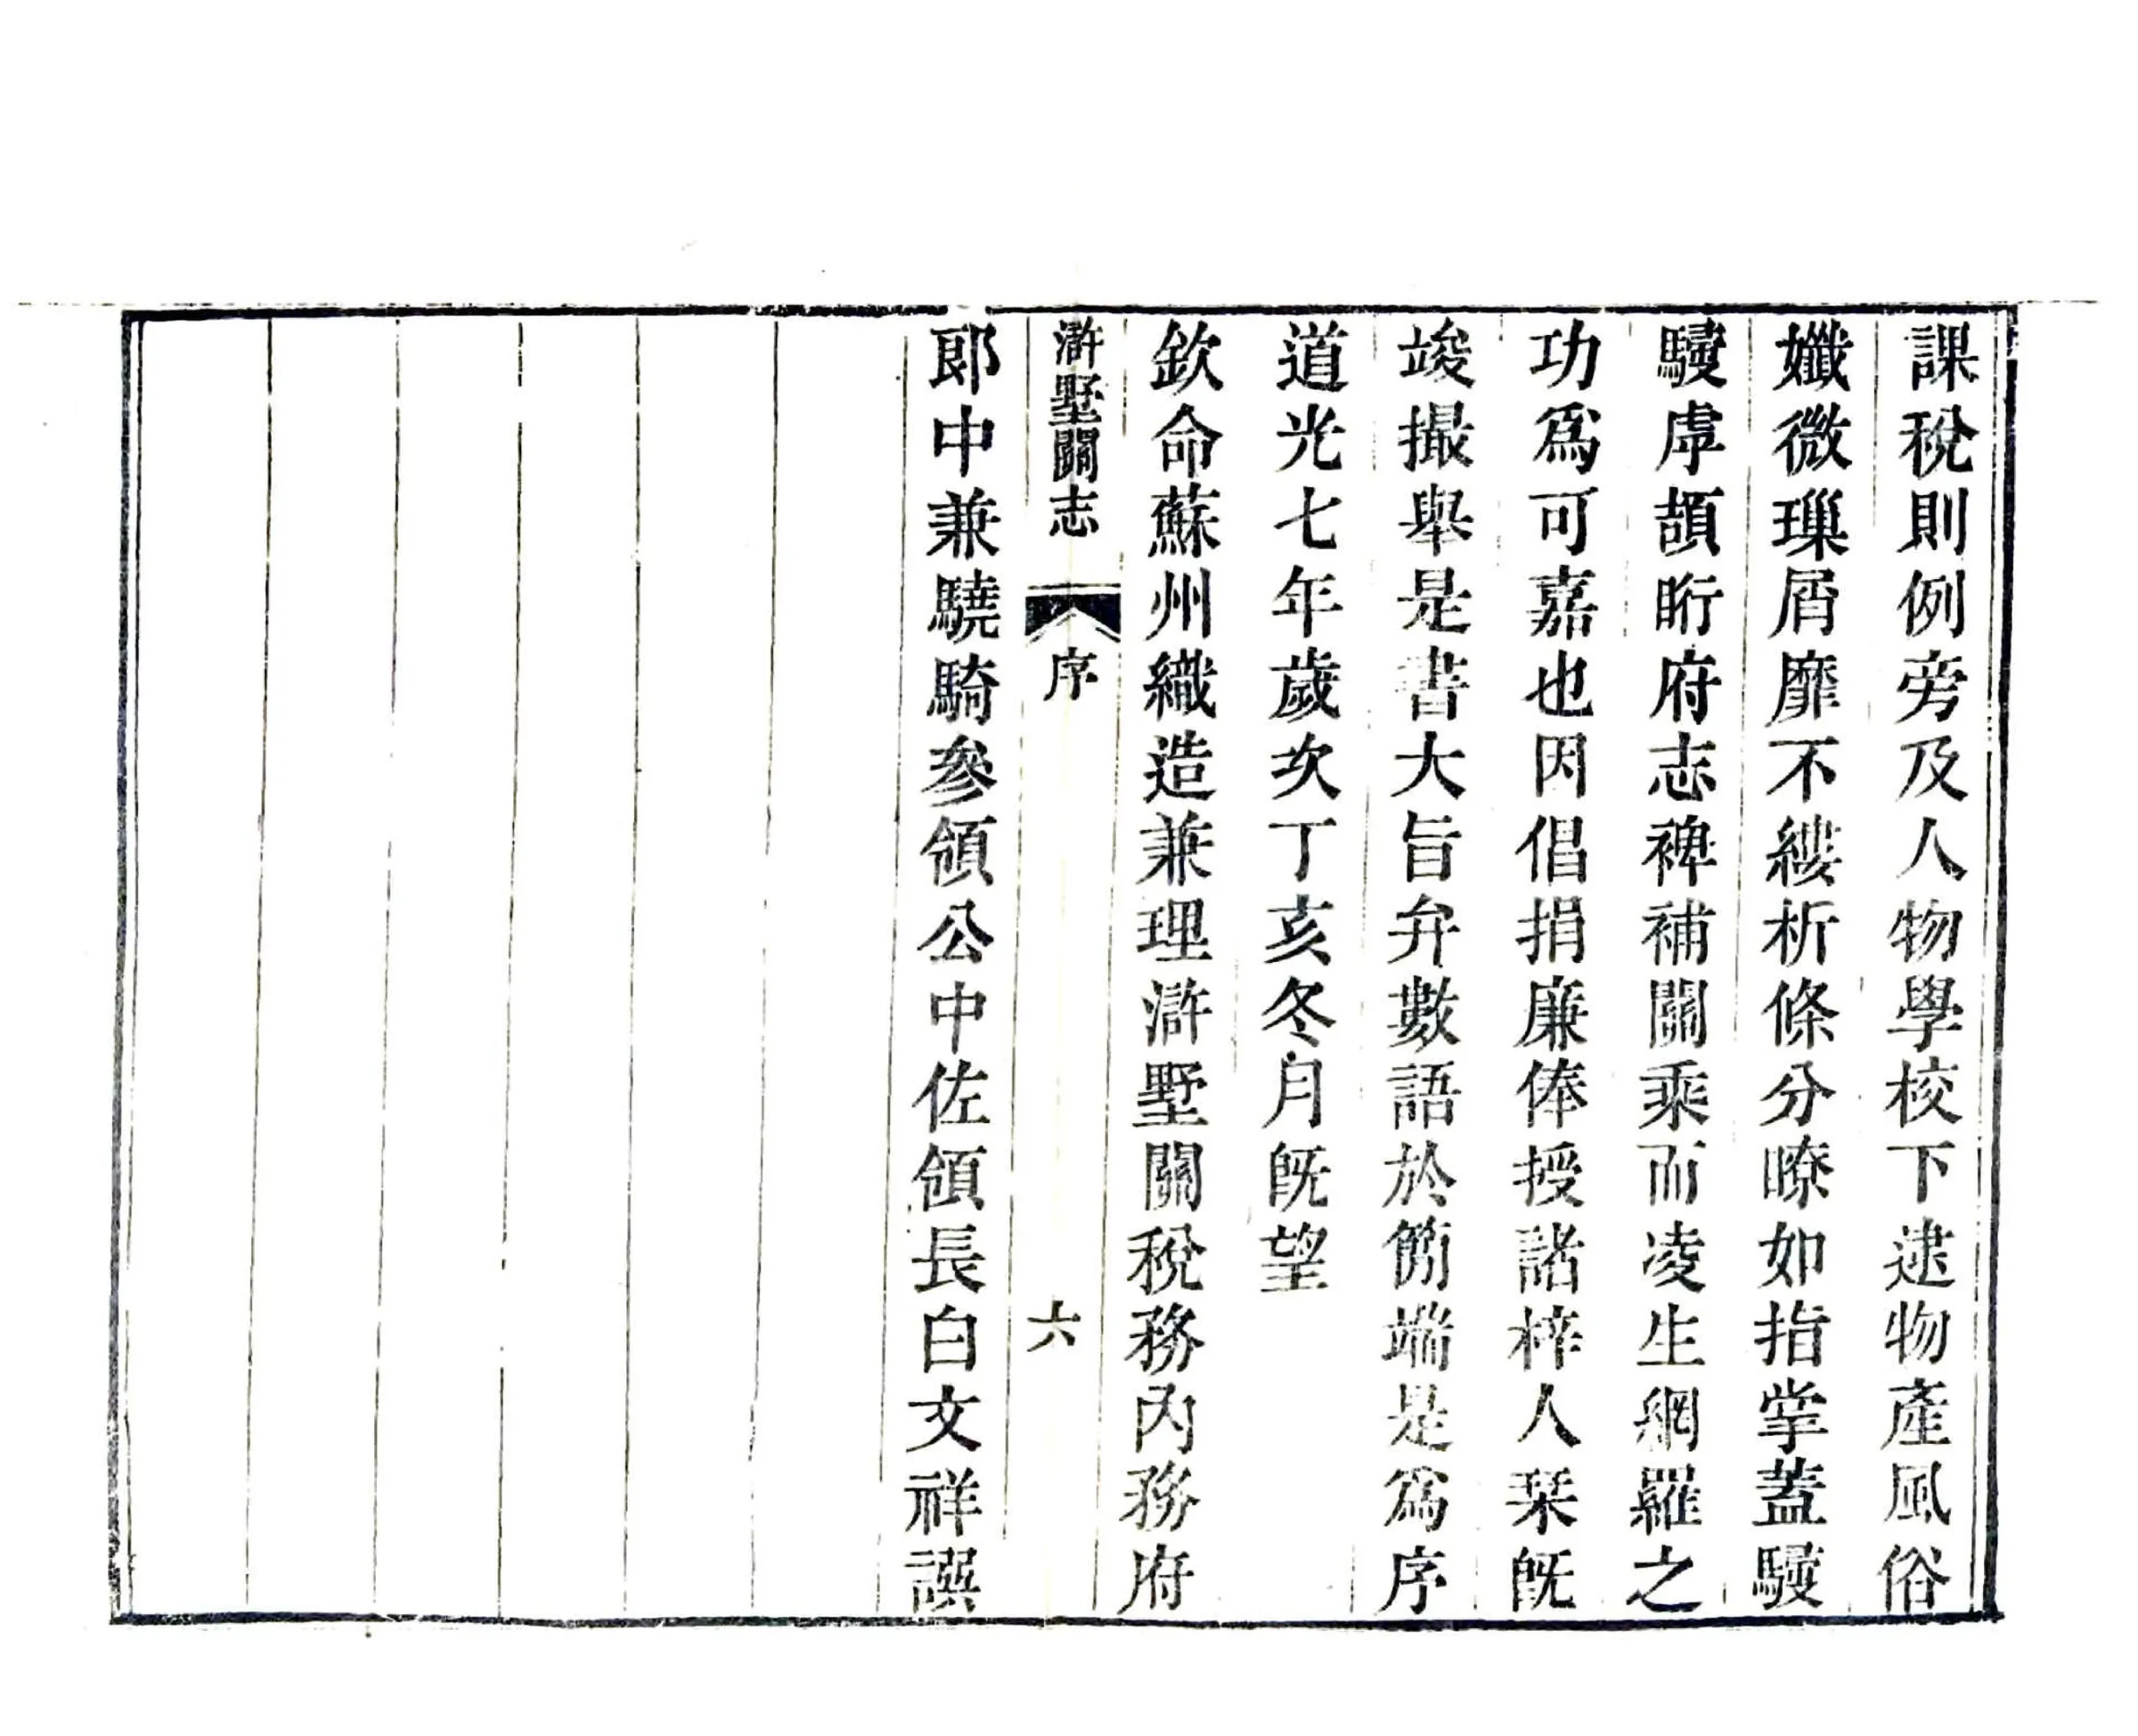 課稅則例旁及人物學校下逮物產風俗
孅微璅屑靡不縷析條分瞭如指掌蓋駸
駸虖頡䀪府志裨補關乘而凌生網羅之
功爲可嘉也因倡捐廉俸授諸梓人栞旣
竣撮舉是書大旨弁數語於簡端是爲序
道光七年歲次丁亥冬月旣望
欽命蘇州織造兼理滸墅關稅務內務府
滸墅關志 序 六
郎中兼驍騎參領公中佐領長白文祥譔